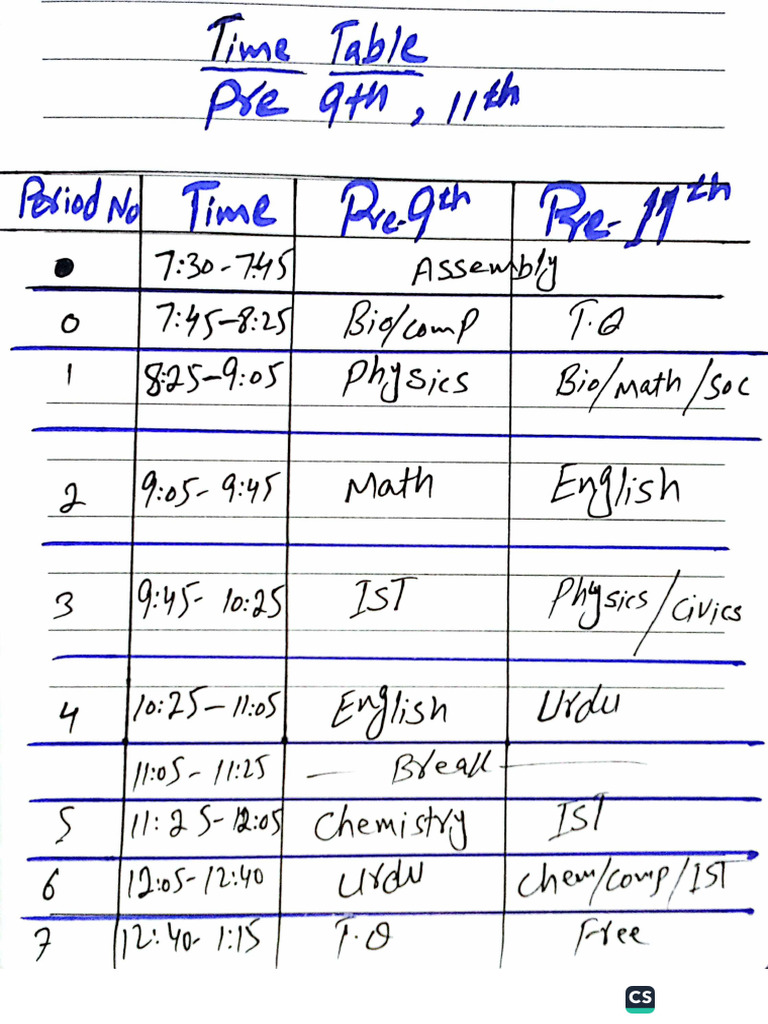 Time Table
Pre 9th, 11th
Period No Time Pre-9th Pre-11th
7:30-7:45 Assembly
0 7:45-8:25 Bio/comp T.Q
1 8:25-9:05 Physics Bio/Math/Soc
2 9:05-9:45 Math English
3 9:45-10:25 IST Physics/Civics
4 10:25-11:05 English Urdu
11:05-11:25 — Break —
5 11:25-12:05 Chemistry IST
6 12:05-12:40 Urdu Chem/comp/IST
7 12:40-1:15 T.Q Free
CS